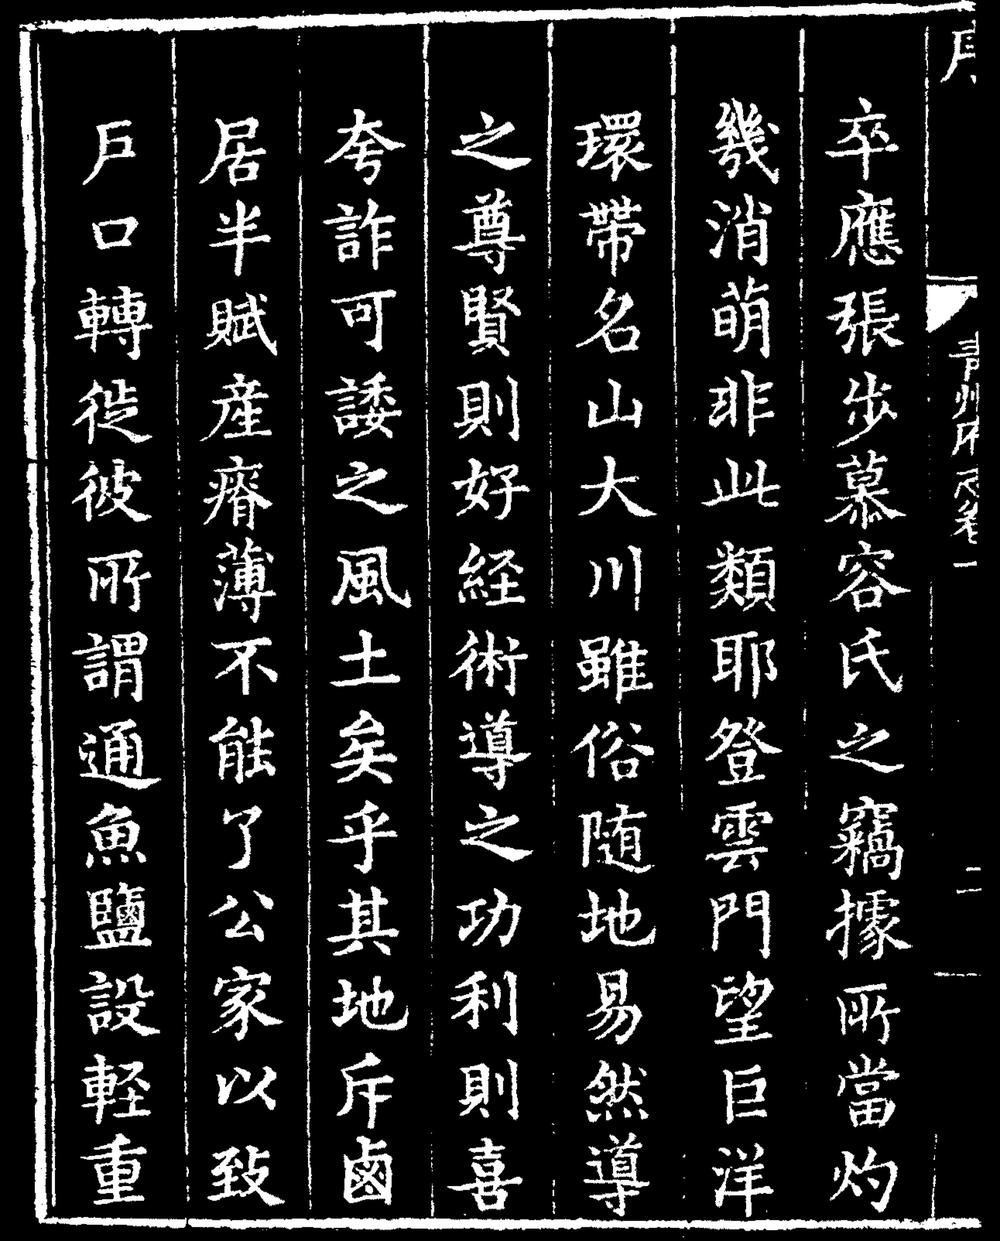 卒應張步慕容氏之竊據所當灼
幾消萌非此類耶登雲門望巨洋
環帶名山大川雖俗随地易然導
之尊賢則好経術導之功利則喜
夸詐可諉之風土矣乎其地斥鹵
居半賦産瘠薄不能了公家以致
戶口轉徙彼所謂通魚鹽設軽重
青州府志卷一
二